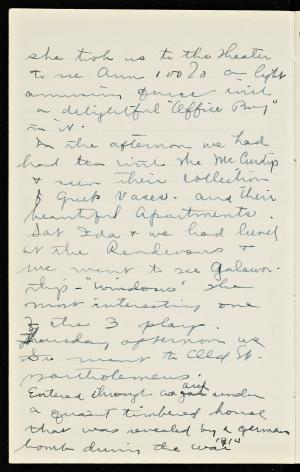 she took us to the theater
to see Ann 100% a light
amusing farce with
a delightful "Office Boy"
in it.
In the afternoon we had
had tea with the McCurdys
& seen their collection
of Greek Vases. and their
beautiful Apartments.
Sat Ida & we had lunch
at the Rendevous &
we went to see Galswor-
thys - "Windows" the
most interesting one
of the 3 plays.
Thursday afternoon we
went to Old St.
Bartholemews.
Entered through an arch under
a quaint timbered house
that was revealed by a german
bomb during the war 1914